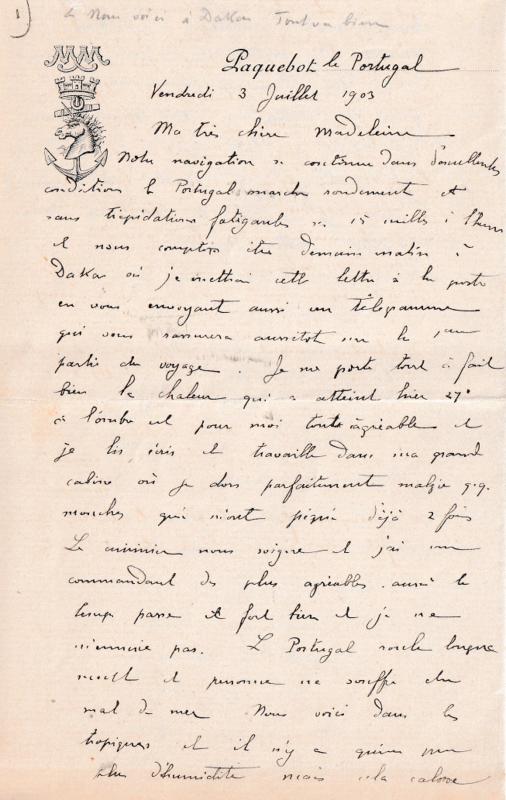 1)
4 Nous voici à Dakar Tout va bien
MM
Paquebot le Portugal
Vendredi 3 Juillet 1903
Ma très chère Madeleine
Notre navigation se continue dans d'excellentes
conditions le Portugal marche rondement et
sans trépidations fatigantes ses 15 milles à l'heure
et nous comptons être demain matin à
Dakar où je mettrai cette lettre à la poste
en vous envoyant aussi un télégramme
qui vous rassurera aussitot sur la 1ère
partie du voyage. Je me porte tout à fait
bien la chaleur qui a atteint hier 27°
à l'ombre est pour moi toute agréable et
je lis écris et travaille dans ma grande
cabine où je dors parfaitement malgré q.q.
mouches qui m'ont piqué déjà 2 fois
Le cuisinier nous soigne et j'ai un
commandant des plus agréables. aussi le
temps passe et fort bien et je ne
m'ennuie pas. Le Portugal roule
et personne ne souffre du
mal de mer Nous voici dans les
tropiques et il n'y a guères
plus d'humidité mais cela